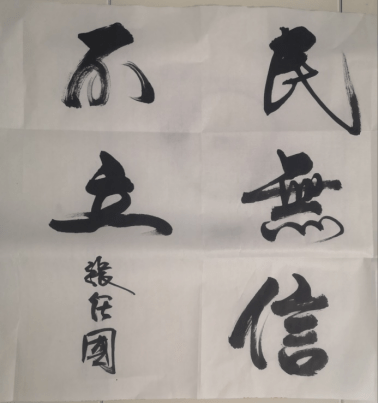 民無信
不立
張任國